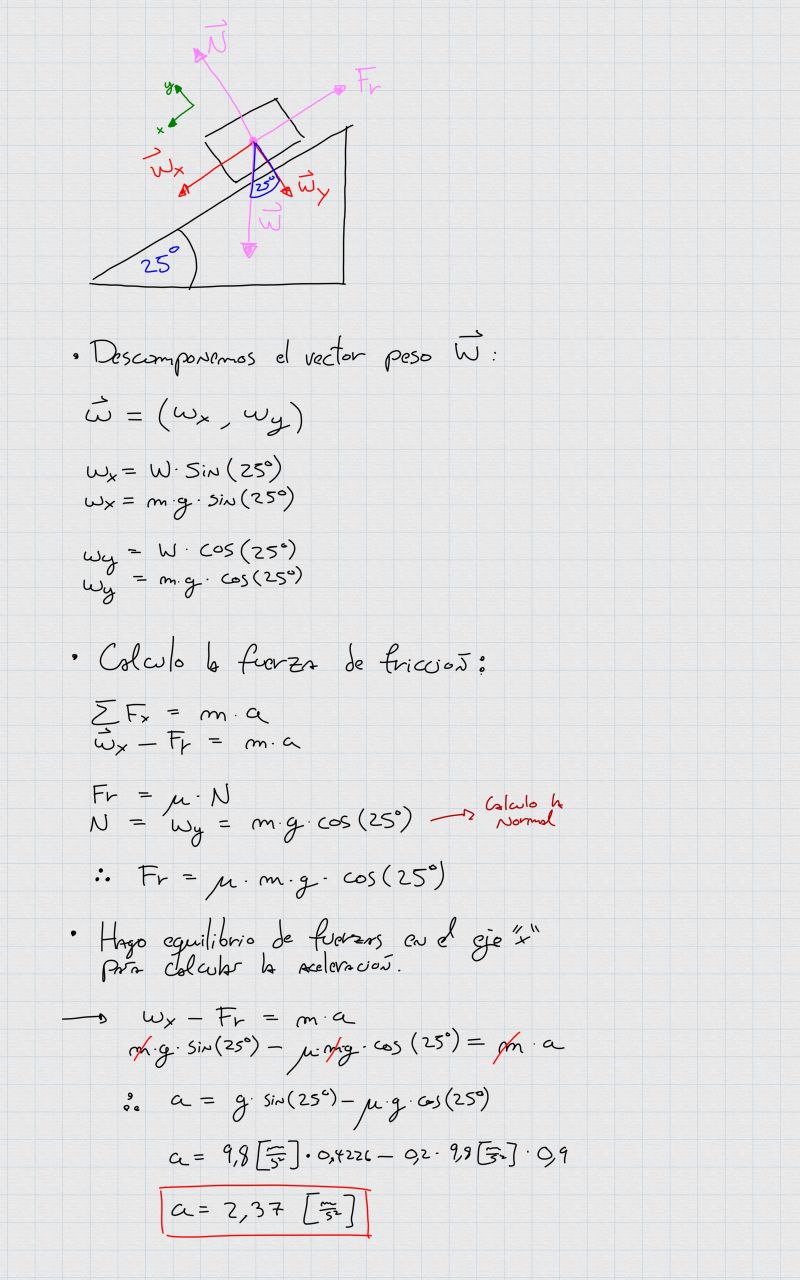 N⃗
Fr
y
x
w⃗x
25°
w⃗y
w⃗
25°
• Descomponemos el vector peso W⃗ :
w⃗ = (wx , wy)
wx = W · Sin(25°)
wx = m·g · sin(25°)
wy = W · cos(25°)
wy = m·g · cos(25°)
• Calculo la fuerza de fricción:
∑ Fx = m · a
w⃗x − Fr = m · a
Fr = μ · N
N = wy = m·g · cos(25°) → Calculo la Normal
∴ Fr = μ · m · g · cos(25°)
• Hago equilibrio de fuerzas en el eje "x"
para calcular la aceleración.
→ wx − Fr = m · a
m·g · sin(25°) − μ·m·g · cos(25°) = m · a
∴ a = g · sin(25°) − μ · g · cos(25°)
a = 9,8 [m/s²] · 0,4226 − 0,2 · 9,8 [m/s²] · 0,9
a = 2,37 [m/s²]